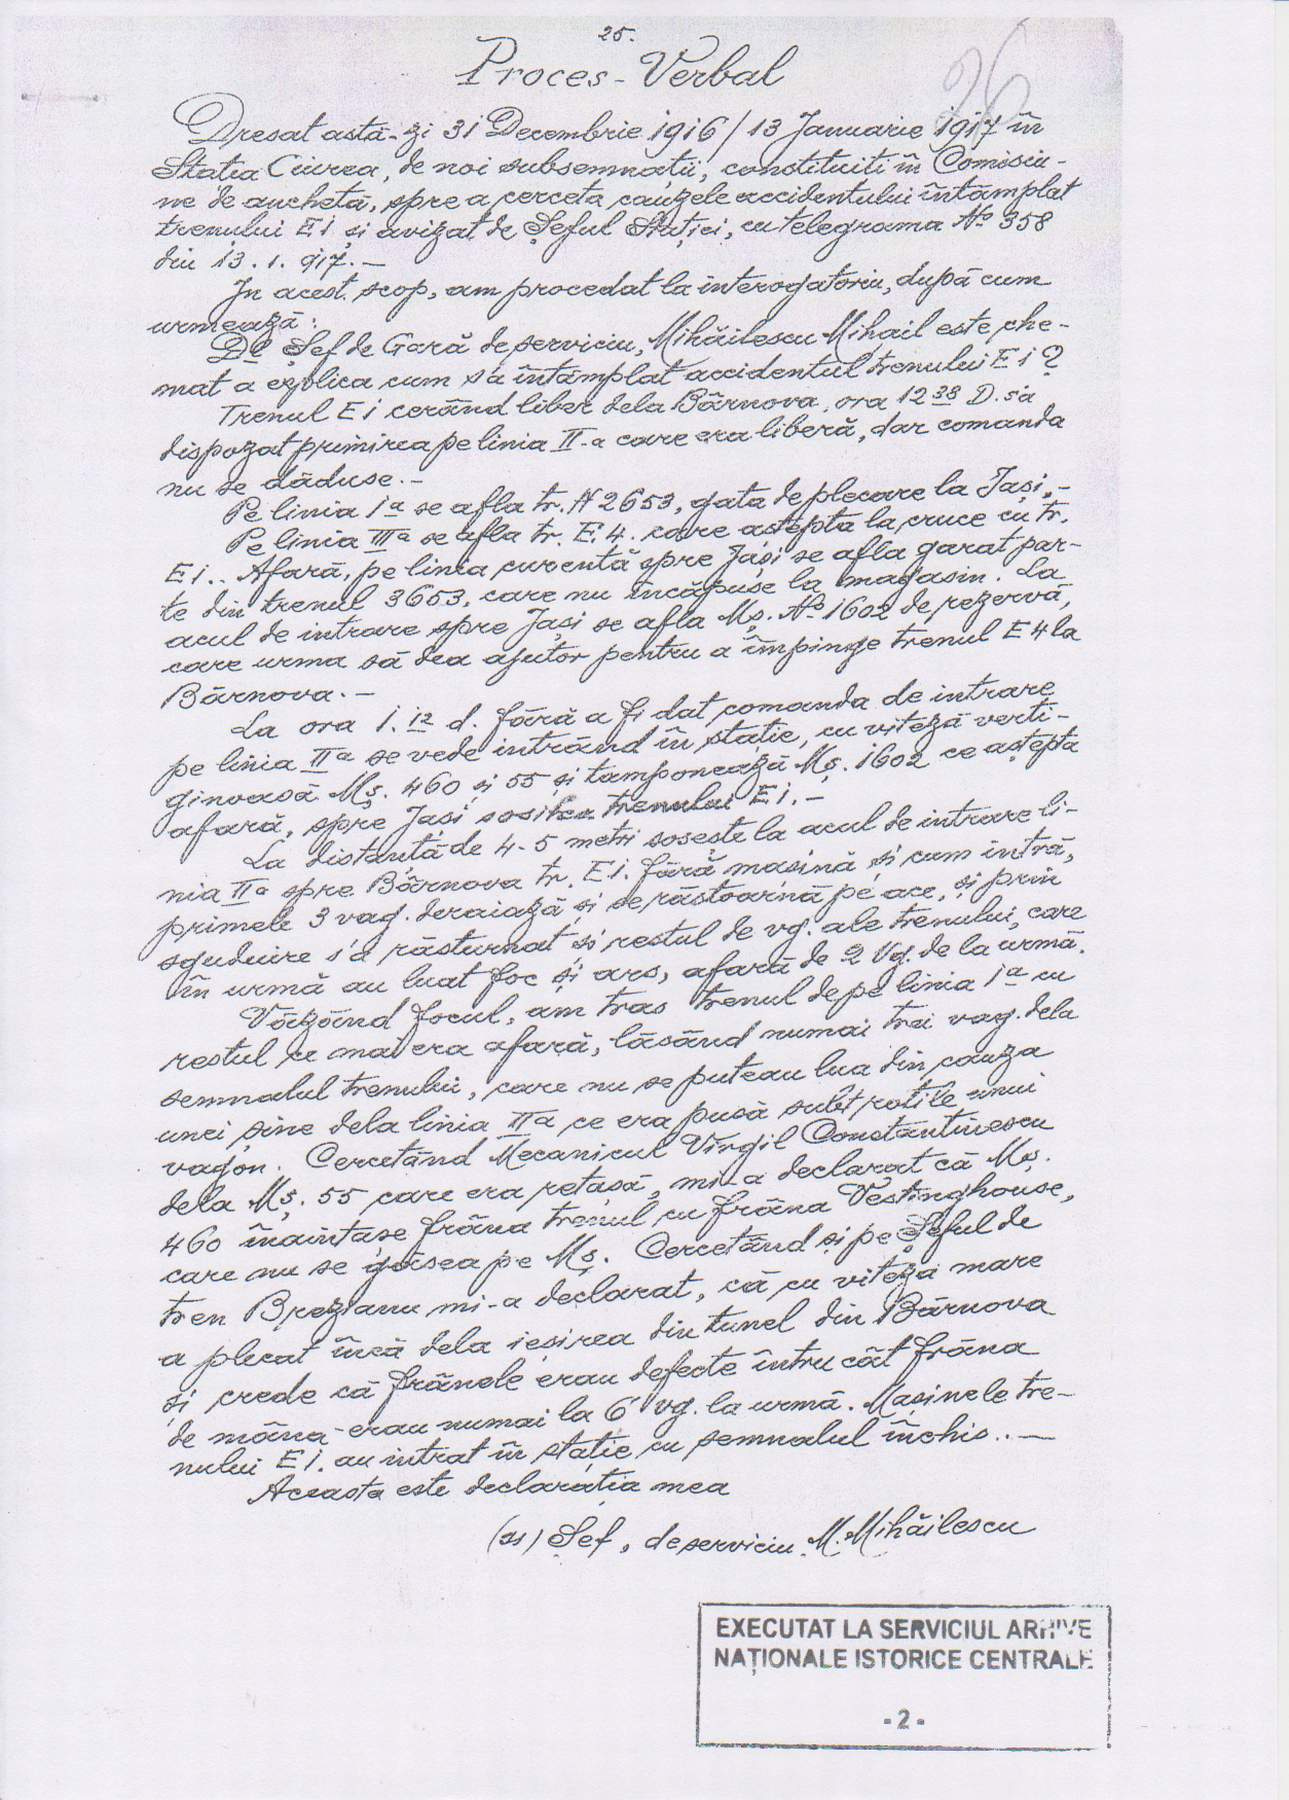 25.
26
Proces-Verbal
Dresat astă-zi 31 Decembrie 1916/13 Januarie 1917 în
Statia Ciurea, de noi subsemnatii, constituiti în Comisiu-
ne de anchetă, spre a cerceta cauzele accidentului întâmplat
trenului E1 și avizat de Șeful Stației, cu telegrama No 358
din 13.1.917.—
In acest scop, am procedat la interogatoriu, după cum
urmează:
Dl Șef de Gară de serviciu, Mihăilescu Mihail este che-
mat a explica cum s'a întâmplat accidentul trenului E1?
Trenul E1 cerând liber dela Bârnova, ora 12 38 D. s'a
dispozat primirea pe linia II-a care era liberă, dar comanda
nu se dăduse.-
Pe linia 1a se afla tr. N 2653, gata de plecare la Jași,-
Pe linia IIIa se afla tr. E.4. care aștepta la cruce cu tr.
E1.. Afară, pe linia curentă spre Jași se afla garat par-
te din trenul 3653, care nu încăpuse la magasin. La
acul de intrare spre Jași se afla Mș. No 1602 de rezervă,
care urma să dea ajutor pentru a împinge trenul E4 la
Bârnova.—
La ora 1.12 d. fără a fi dat comanda de intrare
pe linia IIa se vede intrând în stație, cu viteză verti-
ginoasă Mș. 460 și 55 și tamponează Mș. 1602 ce aștepta
afară, spre Jași sosirea trenului E1.-
La distanță de 4-5 metri sosește la acul de intrare li-
nia IIa spre Bârnova tr. E1. fără mașină și cum intră,
primele 3 vag. deraiază și se răstoarnă pe ace, și prin
sguduire s'a răsturnat și restul de vg. ale trenului, care
în urmă au luat foc și ars, afară de 2 Vg. de la urmă.
Văzând focul, am tras trenul de pe linia 1a cu
restul ce mai era afară, lăsând numai trei vag. dela
semnalul trenului, care nu se puteau lua din cauza
unei șine dela linia IIa ce era pusă subt roțile unui
vagon. Cercetând Mecanicul Virgil Constantinescu
dela Mș. 55 care era retasă, mi-a declarat că Mș.
460 înaintase frâna trenul cu frâna Vestinghouse,
care nu se găsea pe Mș. Cercetând și pe Șeful de
tren Brezianu mi-a declarat, că cu viteză mare
a plecat încă dela ieșirea din tunel din Bârnova
și crede că frânele erau defecte întru cât frâna
de mâna-erau numai la 6 vg. la urmă. Mașinele tre-
nului E1. au intrat în stație cu semnalul închis..—
Aceasta este declarația mea
(ss) Șef, de serviciu M. Mihăilescu
EXECUTAT LA SERVICIUL ARHIVE
NAȚIONALE ISTORICE CENTRALE
- 2 -